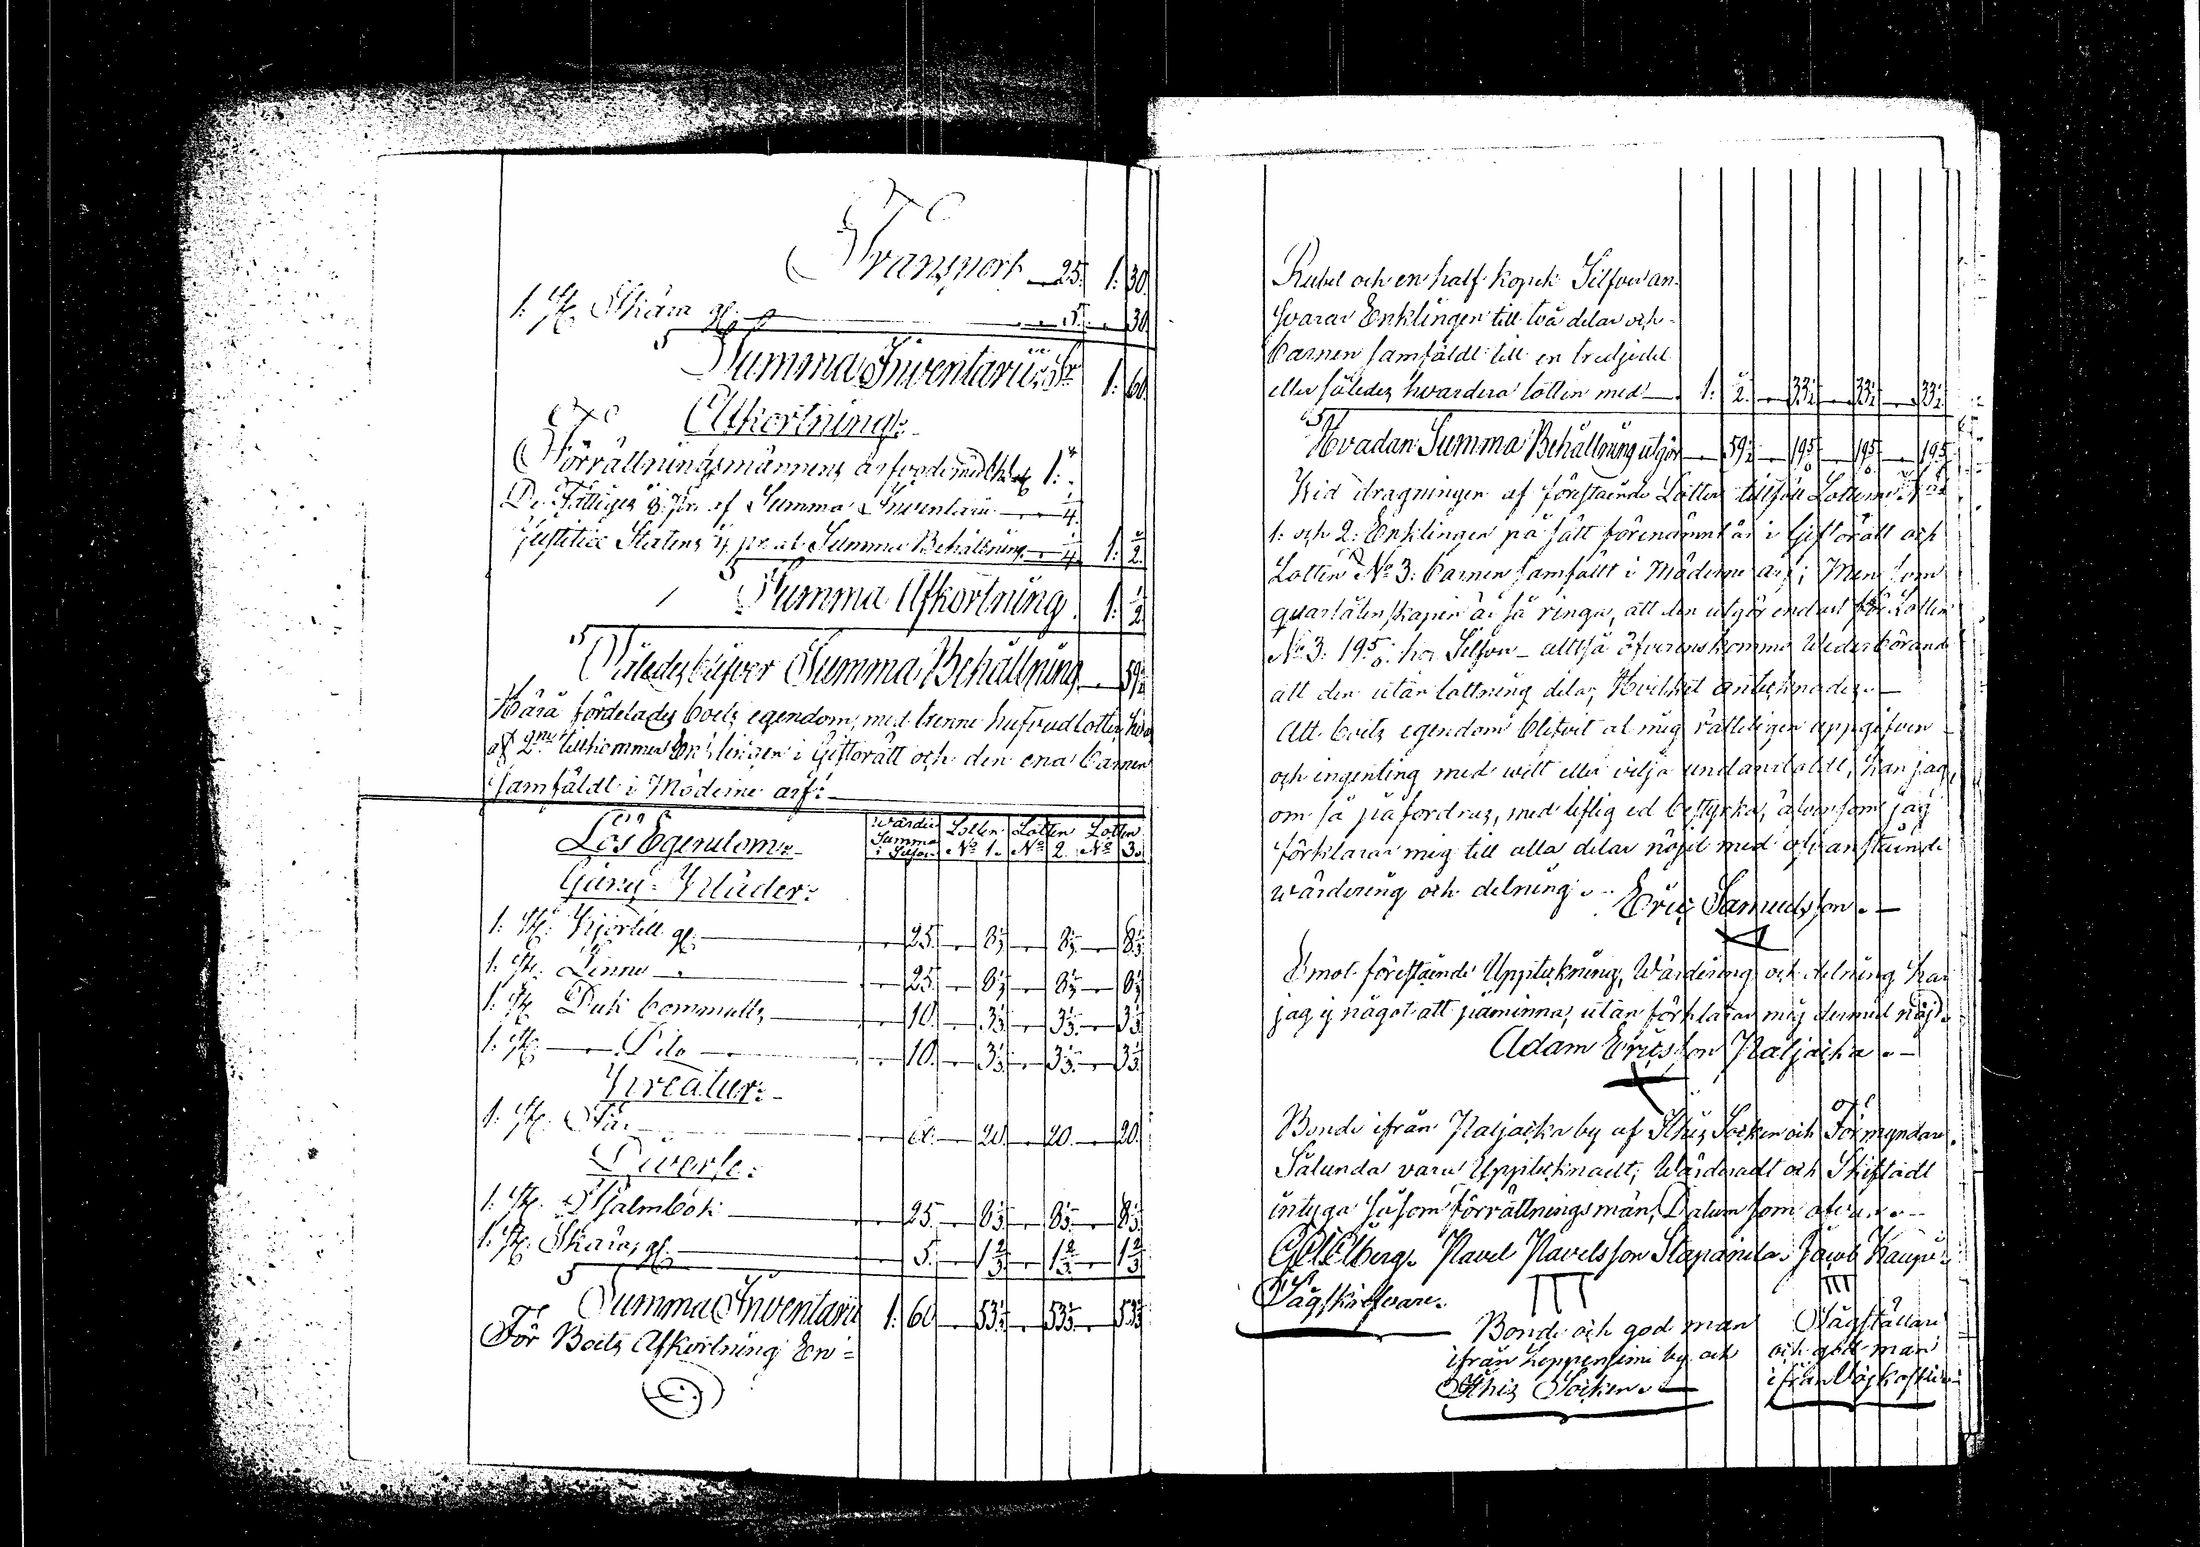 Transport 25. 1. 30.
1. St. Skära gl. 5. 30
Summa Inventarii Sr 1. 60.
Afkortning:
Förrättningsmännens arfvode med 1.
De Fattiges af Summa Inventarii 4.
Justitiæ Statens af Summa Behållning 4. 1. ½.
Summa Afkortning. 1. ½
Således blifver Summa Behållning 59½
Håraf fördelades boets egendom, med trenne hufvudlotter, hvar
af 2ne tillkommer Enklingen i Giftorätt och den ena barnen
samfäldt i Möderne arf:
Lös Egendom:
Wärde Summa i Silfver Lotten No 1. Lotten No 2. Lotten No 3.
Gång Kläder:
1. St. Kjortell gl. 25. 8⅓ 8⅓ 8⅓
1. St. Linne 25. 8⅓ 8⅓ 8⅓
1. St. Duk bommulls 10. 3⅓ 3⅓ 3⅓
1. St. Dito 10. 3⅓ 3⅓ 3⅓
Kreatur:
1. St. Får 60. 20. 20. 20.
Diverse:
1. St. Psalmbok 25. 8⅓ 8⅓ 8⅓
1. St. Skära, gl. 5. 1⅔ 1⅔ 1⅔
Summa Inventarii 1. 60 53⅓ 53⅓ 53⅓
För Boets Afkortning En =
Rubel och en half kopek Silfver an-
svarar Enklingen till två delar och
barnen samfäldt till en tredjedel
eller således hvardera lotten med 1. ½. 33½ 33½ 33½
Hvadan Summa Behållning utgör 59½ 19⅚ 19⅚ 19⅚
Wid dragningen af förestående Lotter tillföll Lotterne No
1. och 2. Enklingen på sätt förenämnt är i Giftorätt och
Lotten No 3. barnen samfällt i Möderne arf; Men som
qvarlåtenskapen är så ringa, att den utgör endast för Lotten
No 3. 19⅚ kop Silfver alltså öfverenskommo Wederbörande
att den utan lottning delas, Hvilket antecknades.
Att boets egendom blifvit af mig rätteligen uppgifven
och ingenting med wett eller vilja undanhåldt, kan jag,
om så påfordras, med liflig ed bestyrka, äfvensom jag
förklarar mig till alla delar nöjd med ofvanstående
wärdering och delning. Eric Samuelsson.
Emot förestående Uppteckning, Wärdering och delning har
jag ej något att påminna, utan förklarar mig dermed nöjd.
Adam Ericsson Kaljacka.
Bonde ifrån Kaljacka by af Sthis Socken och Förmyndare.
Sålunda vara Upptecknadt, Wärderadt och Skiftadt
intyga såsom förrättningsmän, Datum som ofvan.
Pavel Pavelsson Stapanila. Jacob Kaupi
Lagskrifvare.
Bonde och god man
ifrån Leppensimi by och
Sthis Socken.
och god man
ifrån